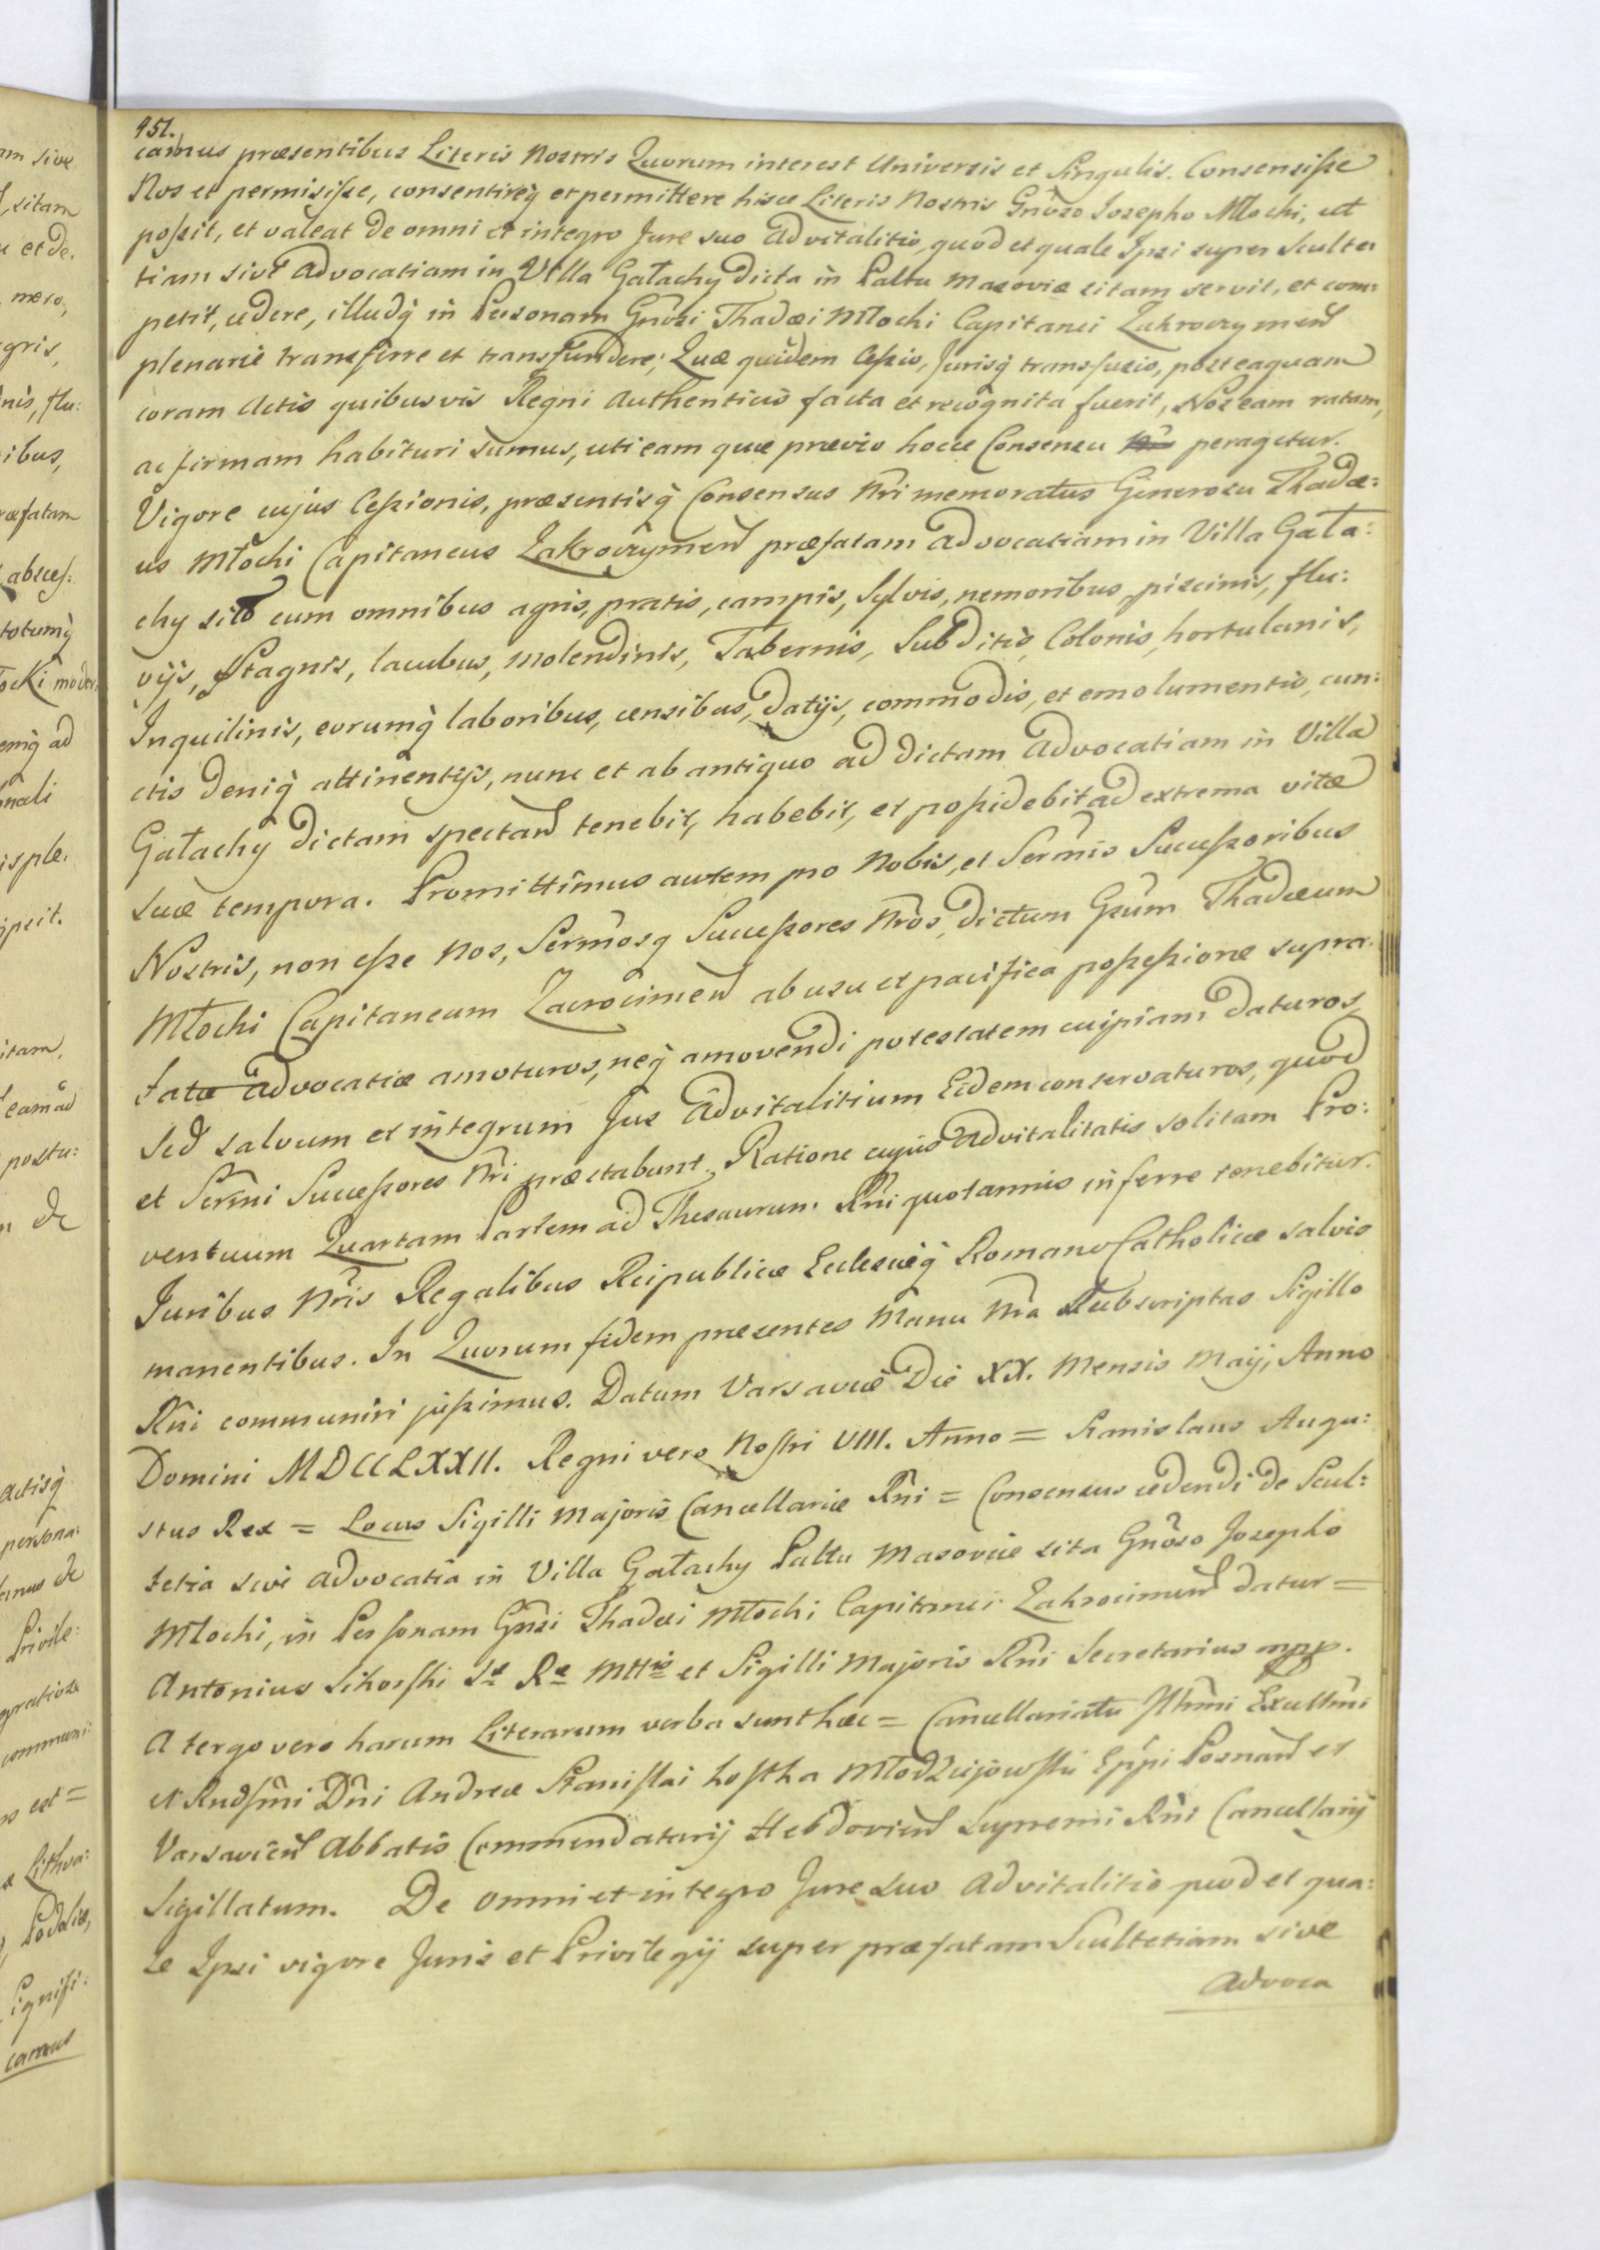 951.
camus præsentibus Literis Nostris Quorum interest Universis et Singulis. Consensiſse
Nos et permisiſse, consentireq̀ et permittere hisce Literis Nostris Gnôso Josepho Młocki, ut
poſsit, et valeat de omni et integro Jure suo Advitalitio, quod et quale Ipsi super Sculte
tiam sive Advocatiam in Villa Gałachy dicta in Palttu Masoviæ sitam servit, et com:
petit, cedere, illudq̀ in Personam Gnôsi Thadæi Młocki Capitanei Zakroczymeñ
plenarie transferre et transfundere; Quæ quidem Ceſsio, Jurisq̀ transfusio, posteaquam
coram Actis quibusvis Regni Authenticis facta et recognita fuerit, Nos eam ratam,
ac firmam habituri sumus, uti eam quæ prævio hocce Consensu peragetur.
Vigore cujus Ceſsionis, præsentisq̀ Consensus Nri memoratus Generosu Thadæ:
us Młocki Capitaneus Zakroczymeñ præfatam Advocatiam in Villa Gała:
chy sito cum omnibus agris, pratis, campis, Sylvis, nemoribus, piscinis, flu:
vijs, Stagnis, lacubus, molendinis, Tabernis, Subditis, Colonis, hortulanis,
Inquilinis, eorumq̀ laboribus, censibus, datijs, commodis, et emolumentis, cun:
ctis deniq̀ attinentijs, nunc et ab antiquo ad dictam Advocatiam in Villa
Gałachy dictam spectañ tenebit, habebit, et poſsidebit ad extrema vitæ
suæ tempora. Promittimus autem pro Nobis, et Sermis Succeſsoribus
Nostris, non eſse Nos, Sermosq Succeſsores Nros, dictum Gsum Thadæum
Młocki Capitaneum Zacrocimeñ ab usu et pacifica poſseſsione supra
fatæ Advocatiæ amoturos, neq̀ amovendi potestatem cuipiam daturos,
Sed salvum et integrum Jus Advitalitium Eidem conservaturos, quod
et Sermi Succeſsores Nri præstabunt. Ratione cujus Advitalitatis solitam Pro:
ventuum Quartam Partem ad Thesaurum Rni quotannis inferre tenebitur.
Juribus Nris Regalibus Reipublicæ Eccleſiæq̀ Romano Catholicæ salvis
manentibus. In Quorum fidem præsentes Manu Nra Subscriptas Sigillo
Rni communiri juſsimus. Datum Varsaviæ Die XX. Mensis Maij, Anno
Domini MDCCLXXII. Regni vero Nostri VIII. Anno = Stanislaus Augu:
stus Rex = Locus Sigilli Majoris Cancellariæ Rni = Consensus cedendi de Scul:
tetia sive Advocatia in Villa Gałachy Palttu Masoviæ sita Gnôso Josepho
Młocki, in Personam Gnsi Thadæi Młocki Capitanei Zakrocimeñ datur =
Antonius Sikorski Sæ Ræ Mttis et Sigilli Majoris Rni Secretarius mpp.
A tergo vero harum Literarum verba sunt hæc = Cancellariatu Illmi Excllmi
et Rndſmi Dni Andreæ Stanislai Kostka Młodziejowski Eppi Posnañ et
Varsavień Abbatis Commendatarij Hebdovień Supremi Rni Cancellarij
Sigillatum. De omni et integro Jure suo Advitalitio quod et qua:
le Ipsi vigore Juris et Privilegij super præfatam Scultetiam sive
Advoca